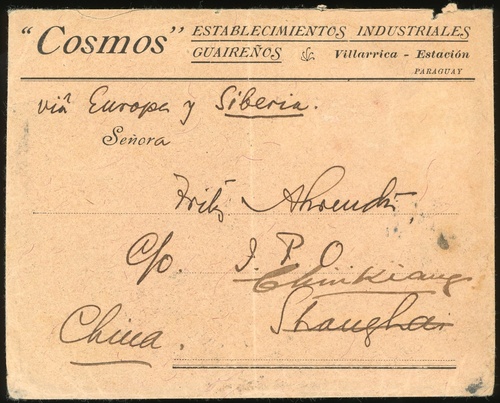 "Cosmos" ESTABLECIMIENTOS INDUSTRIALES
GUAIREÑOS Villarrica - Estación
PARAGUAY
viâ Europa y Siberia.
Señora
Fritz
C/o. I. P. O.
Chinkiang
Shanghai
China.